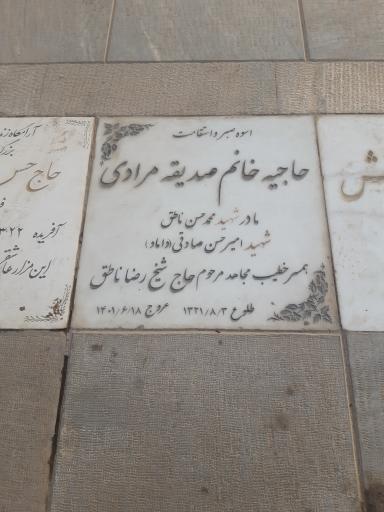 اسوه صبر و استقامت
حاجیه خانم صدیقه مرادی
مادر شهید محمدحسن ناطق
شهید امیرحسن صادقی (داماد)
همسر خطیب مجاهد مرحوم حاج شیخ رضا ناطق
طلوع ۱۳۲۱/۸/۳ عروج ۱۴۰۱/۶/۱۸
آرامگاه
بزرگ
حاج حسن
آفریده
این مزار عاشق
ش